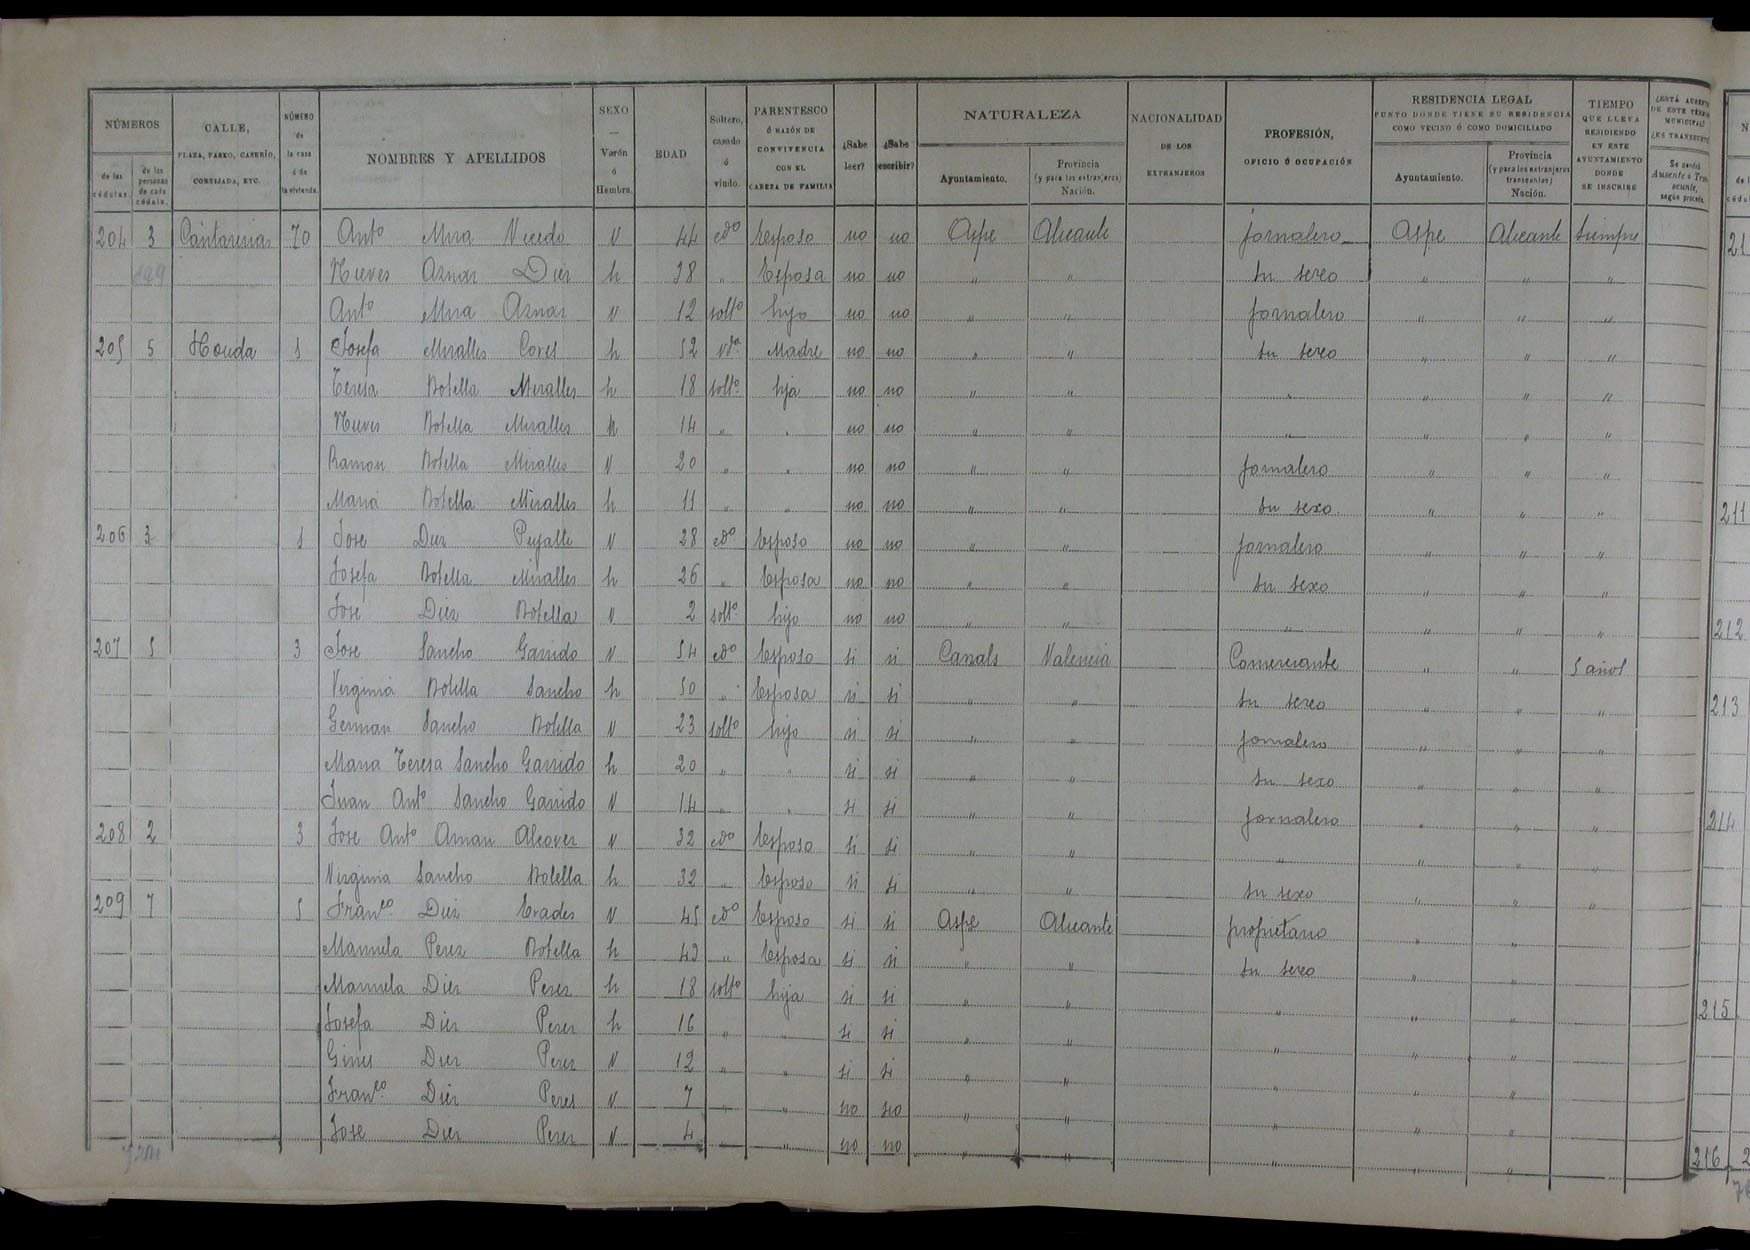 NÚMEROS | CALLE, PLAZA, PASEO, CASERÍO, CORTIJADA, ETC. | NÚMERO de la casa ó de la vivienda. | NOMBRES Y APELLIDOS | SEXO — Varón ó Hembra. | EDAD | Soltero, casado ó viudo. | PARENTESCO Ó RAZÓN DE CONVIVENCIA CON EL CABEZA DE FAMILIA | ¿Sabe leer? | ¿Sabe escribir? | NATURALEZA | NACIONALIDAD DE LOS EXTRANJEROS | PROFESIÓN, OFICIO Ó OCUPACIÓN | RESIDENCIA LEGAL PUNTO DONDE TIENE SU RESIDENCIA COMO VECINO Ó COMO DOMICILIADO | TIEMPO QUE LLEVA RESIDIENDO EN ESTE AYUNTAMIENTO DONDE SE INSCRIBE | ¿ESTÁ AUSENTE DE ESTE TÉRM MUNICIPAL?
de las cédulas. | de las personas de cada cédula. | Ayuntamiento. | Provincia (y para los extranjeros) Nación. | Ayuntamiento. | Provincia (y para los extranjeros transeuntes) Nación.
204 3 Cantarerias 70 Antº Mira Vicedo V 44 cdº Esposo no no Aspe Alicante jornalero Aspe Alicante siempre
Nieves Aznar Diez h 38 " Esposa no no " " su sexo " " "
Antº Mira Aznar V 12 soltº hijo no no " " jornalero " " "
205 5 Honda 1 Josefa Miralles h 52 vdª Madre no no " " su sexo " " "
Teresa Botella Miralles h 18 soltº hija no no " " " " " "
Nieves Botella Miralles h 14 " " no no " " " " " "
Ramon Botella Miralles V 20 " " no no " " jornalero " " "
Maria Botella Miralles h 11 " " no no " " su sexo " " "
206 3 1 Jose Diez Pujalte V 28 cdº Esposo no no " " jornalero " " "
Josefa Botella Miralles h 26 " Esposa no no " " su sexo " " "
Jose Diez Botella V 2 soltº hijo no no " " " " " "
207 5 3 Jose Sancho Garrido V 54 cdº Esposo si si Canals Valencia Comerciante " " 5 años
Virginia Botella Sancho h 50 " Esposa si si " " su sexo " " "
German Sancho Botella V 23 soltº hijo si si " " jornalero " " "
Maria Teresa Sancho Garrido h 20 " " si si " " su sexo " " "
Juan Antº Sancho Garrido V 14 " " si si " " jornalero " " "
208 2 3 Jose Antº Alcover V 32 cdº Esposo si si " " " " " "
Virginia Sancho Botella h 32 " Esposo si si " " su sexo " " "
209 7 5 Francº Diez Erades V 45 cdº Esposo si si Aspe Alicante propietario " "
Manuela Perez Botella h 43 " Esposa si si " " su sexo " "
Manuela Diez Perez h 18 soltº hija si si " " " " "
Josefa Diez Perez h 16 " " si si " " " " "
Gines Diez Perez V 12 " " si si " " " " "
Francº Diez Perez V 7 " " no no " " " " "
Jose Diez Perez V 4 " " no no " " " " "
211
212
213
214
215
216 2